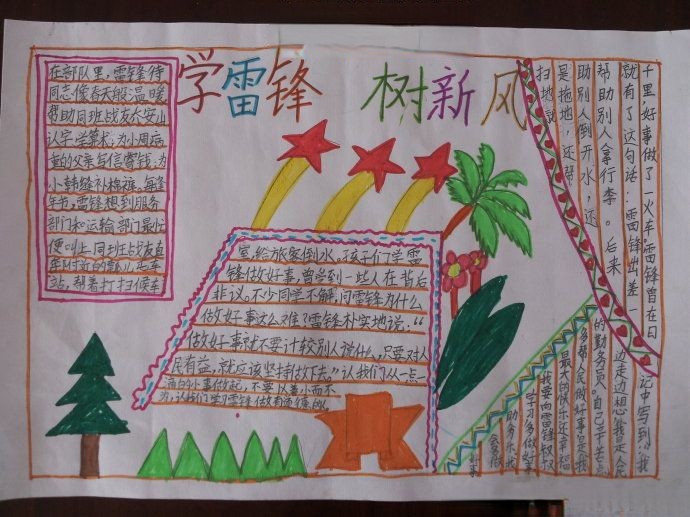 学雷锋 树新风
在部队里，雷锋待
同志像春天般温暖
帮助同班战友乔安山
认字、学算术，为小周病
重的父亲写信寄钱，为
小韩缝补棉裤。每逢
年节，雷锋想到服务
部门和运输部门最忙
便叫上同班战友直
站，帮着打扫候车
室，给旅客倒水。孩子们学雷
锋做好事，曾受到一些人在背后
非议。不少同学不解，问雷锋为什么
做好事这么难？雷锋朴实地说：“
做好事就不要计较别人说什么，只要对人
民有益，就应该坚持做下去。”让我们从一点
一滴的小事做起，不要以善小而不
为，让我们学习雷锋
十里，好事做了一火车，雷锋曾在日
就有了这句话：雷锋出差一
帮助别人拿行李。后来
助别人倒开水，还
是拖地，还帮
扫地就
记中写到：我
边走边想我是人民
的勤务员。自己辛苦点
多帮人民做好事，是我
最大的快乐还幸福
我要向雷锋叔叔
学习，多做好事
助多乐我
会多做